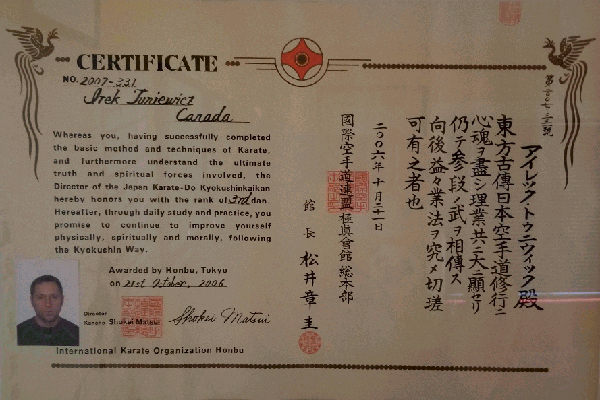 CERTIFICATE
NO. 2007-331
Irek Turiewicz
Canada
Whereas you, having successfully completed
the basic method and techniques of Karate,
and furthermore understand the ultimate
truth and spiritual forces involved, the
Director of the Japan Karate-Do Kyokushinkaikan
hereby honors you with the rank of 3rd dan.
Hereafter, through daily study and practice, you
promise to continue to improve yourself
physically, spiritually and morally, following
the Kyokushin Way.
Awarded by Honbu, Tokyo
on 21st October, 2006
Director
Kancho Shokei Matsui
Shokei Matsui
International Karate Organization Honbu
アイレック・トゥニウィック殿
東方古傳日本空手道修行ニ
心魂ヲ盡シ理業共ニ大ニ顯セリ
仍テ参段ノ武ヲ相傳ス
向後益々業法ヲ究メ切瑳
可有之者也
二〇〇六年十月二十一日
國際空手道連盟極真會館 総本部
館長 松井章圭